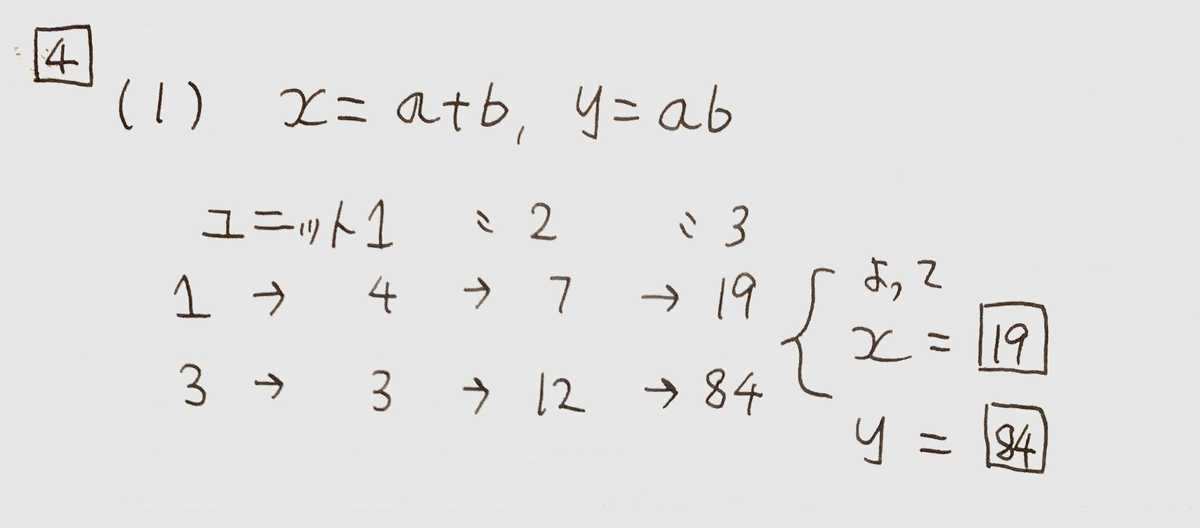 4
(1) x = a+b, y = ab
ユニット1 〃 2 〃 3
1 → 4 → 7 → 19
3 → 3 → 12 → 84
よって
x = 19
y = 84